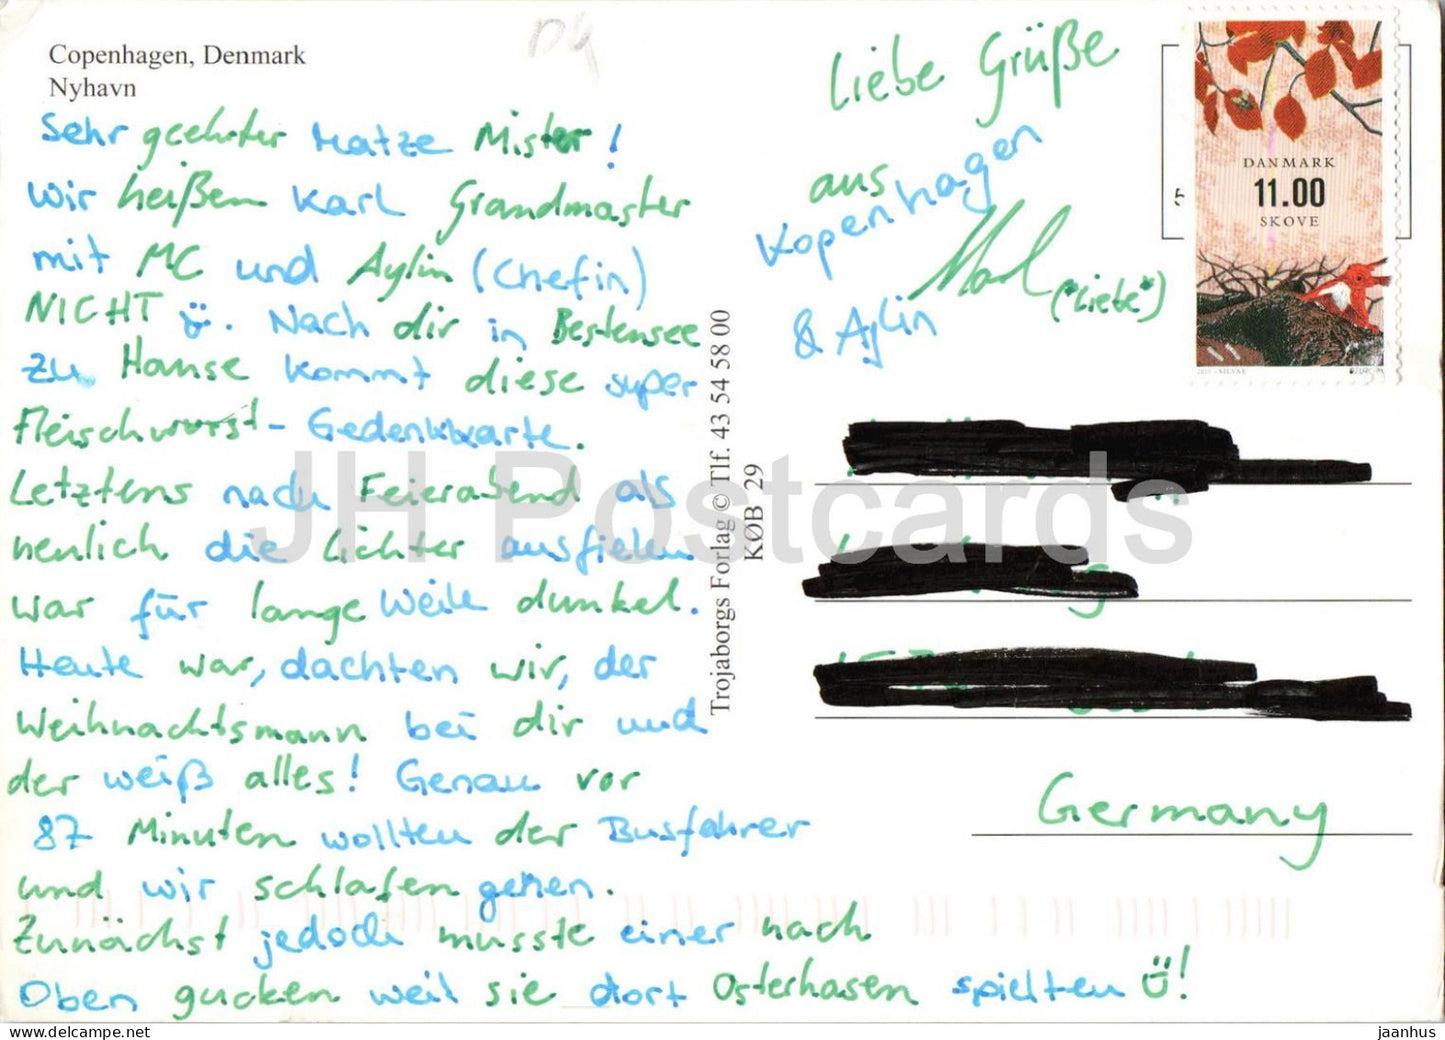 Copenhagen, Denmark
Nyhavn
Sehr geehrter Matze Mister!
Wir heißen Karl Grandmaster
mit MC und Aylin (Chefin)
NICHT. Nach dir in Bestensee
zu Hause kommt diese super
Fleischwurst-Gedenkkarte.
Letztens nach Feierabend als
neulich die Lichter ausfielen
war für lange Weile dunkel.
Heute war, dachten wir, der
Weihnachtsmann bei dir und
der weiß alles! Genau vor
87 Minuten wollten der Busfahrer
und wir schlafen gehen.
Zunächst jedoch musste einer nach
Oben gucken weil sie dort Osterhasen spielten!
Trojaborgs Forlag © Tlf. 43 54 58 00
KØB 29
Liebe Grüße
aus
Kopenhagen
("Liebe")
& Aylin
DANMARK
11.00
SKOVE
Germany
JH Postcards
www.delcampe.net
jaanhus